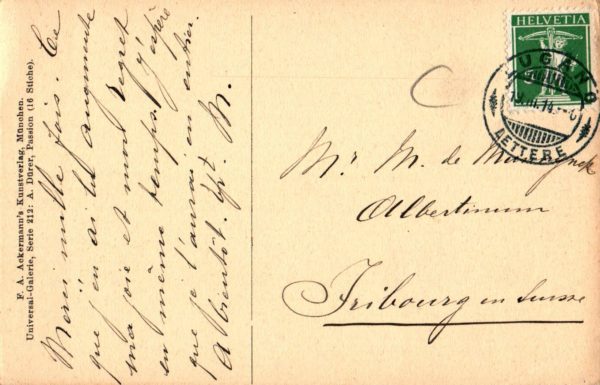 F. A. Ackermann's Kunstverlag, München.
Universal-Galerie, Serie 212: A. Dürer, Passion (16 Stiche).
Merci mille fois. Ce
que j'en ai lu augmente
ma joie et mon regret
en même temps. J'espère
que je l'aurai en entier.
A bientôt.
HELVETIA
LUGANO
LETTERE
Mr M. de
Albertinum
Fribourg en Suisse